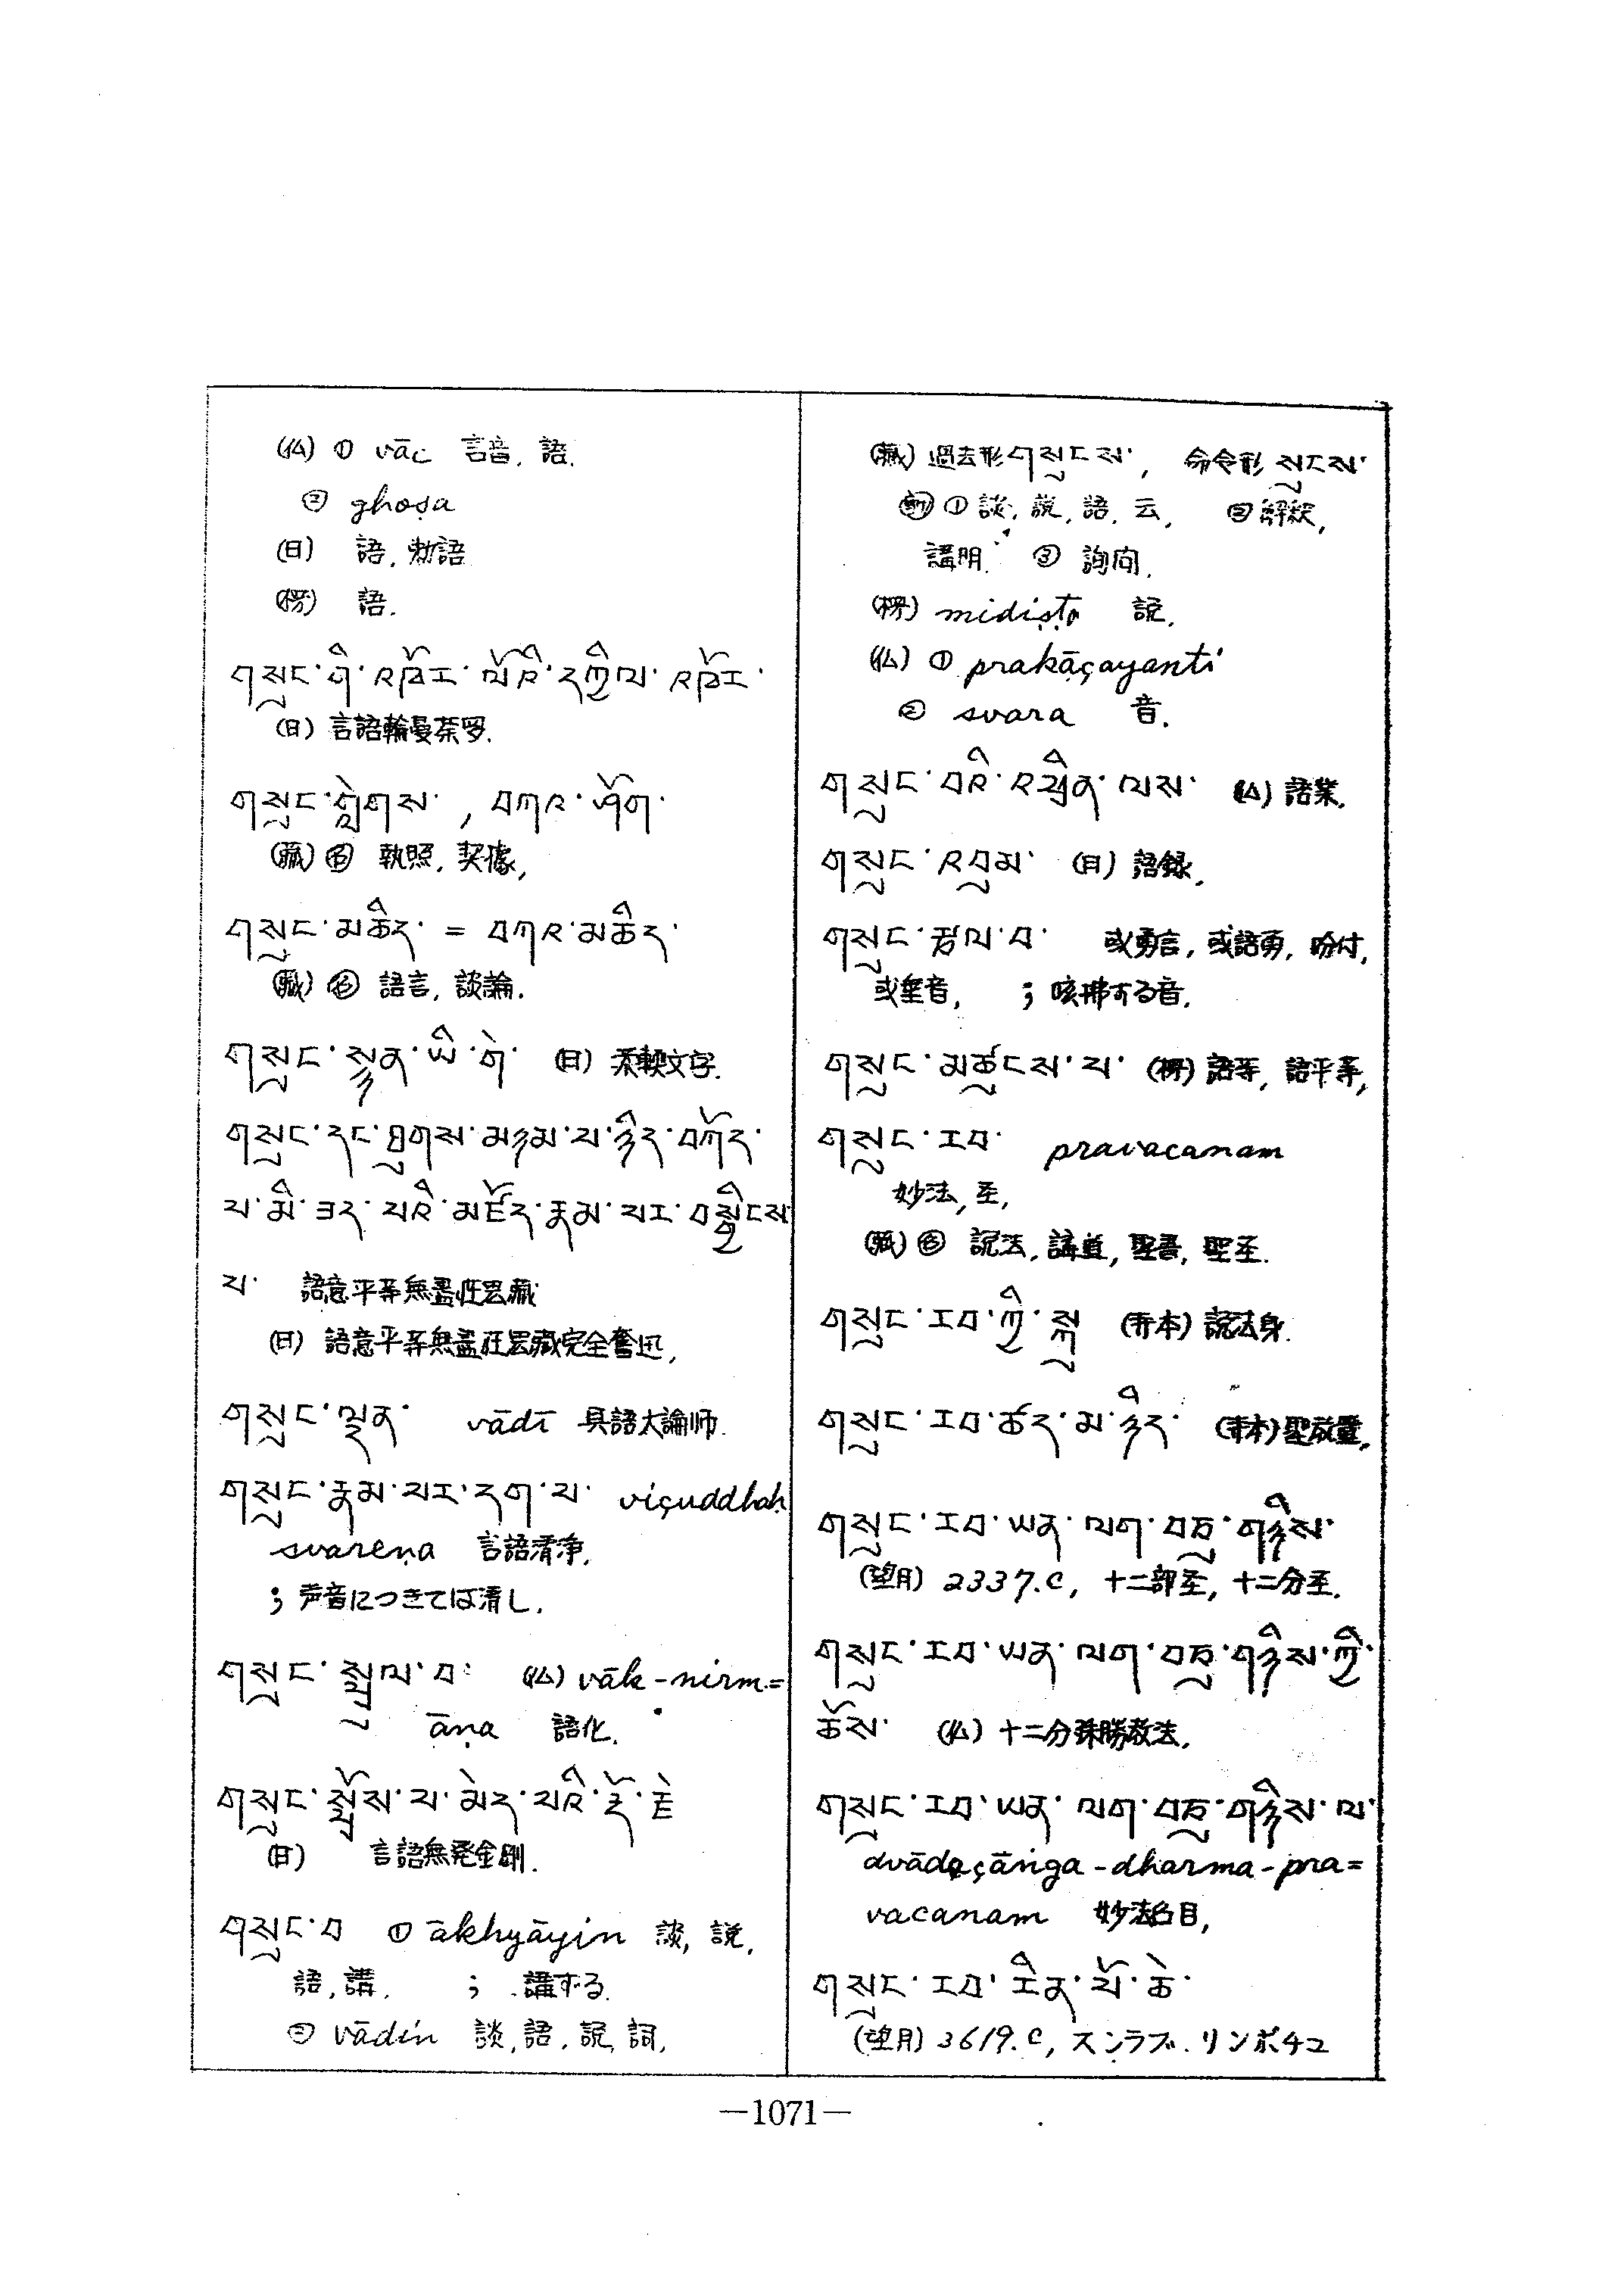 (仏) ① vāc 言音, 語.
② ghoṣa
(日) 語, 勅語
(楞) 語.
གསུང་གི་འཁོར་ལོའི་དཀྱིལ་འཁོར་
(日) 言語輪曼荼罗.
གསུང་གླེགས་, བཀའ་ཤོག་
(蔵) 執照, 契據,
གསུང་མཆིད་ = བཀའ་མཆིད་
(蔵) 語言, 談論.
གསུང་སྙན་ཡི་གེ་ (日) 柔軟文字.
གསུང་དང་ཐུགས་མཉམ་པ་ཉིད་བཀོད་
པ་མི་ཟད་པའི་མཛོད་རྣམ་པར་བསྒྱིངས་
པ་ 語意平等無盡荘厳藏
(日) 語意平等無盡荘厳藏完全奮迅,
གསུང་ལྡན་ vādī 具語大論师.
གསུང་རྣམ་པར་དག་པ་ viçuddhaḥ
svareṇa 言語清浄,
; 声音につきては清し.
གསུང་སྤྲུལ་བ་ (仏) vāk-nirm=
āṇa 語化.
གསུང་སྤྲོས་པ་མེད་པའི་རྡོ་རྗེ
(日) 言語無発金剛.
གསུང་བ ① ākhyāyin 談, 説,
語, 講. ; 講する.
② vādin 談, 語, 説, 詞,
(蔵) 過去形 གསུངས་, 命令形 སུངས་
① 談, 説, 語, 云, ② 解釈,
講明. ③ 詢问.
(楞) 説,
(仏) ① prakāçayanti
② svara 音.
གསུང་བའི་འཕྲིན་ལས་ (仏) 語業,
གསུང་འབུམ་ (日) 語録,
གསུང་ 或勇言, 或語勇, 吩付,
或 音, ; 咳拂する音.
གསུང་མཚུངས་པ་ (楞) 語等, 語平等,
གསུང་རབ་ pravacanam
妙法, 経,
(蔵) 説法, 講道, 聖書, 聖経.
གསུང་རབ་ཀྱི་སྐུ (市本) 説法身.
གསུང་རབ་ཚད་མ་ཉིད་
གསུང་རབ་ཡན་ལག་བཅུ་གཉིས་
(望月) 2337.C, 十二部経, 十二分経.
གསུང་རབ་ཡན་ལག་བཅུ་གཉིས་ཀྱི་
ཆོས་ (仏) 十二分殊勝教法,
གསུང་རབ་ཡན་ལག་བཅུ་གཉིས་ལ་
dvādaçāṅga-dharma-pra=
vacanam 妙法名目,
གསུང་རབ་རིན་པོ་ཆེ་
(望月) 3619.C, スンラブ. リンポチエ
—1071—